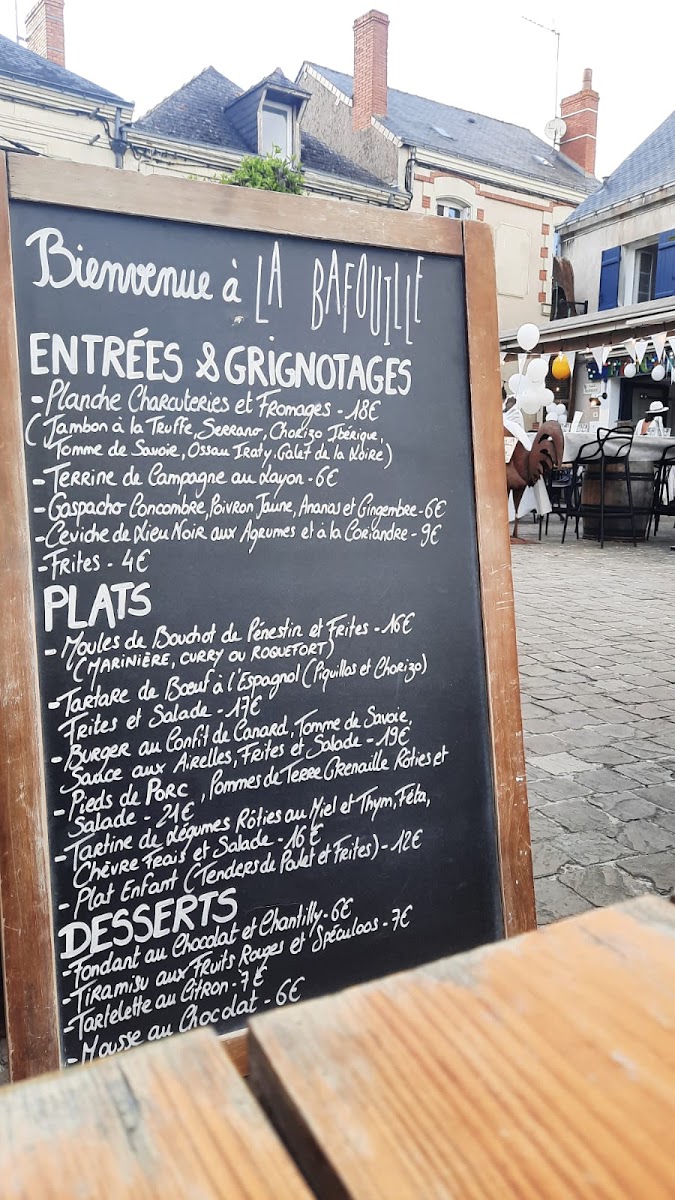 Bienvenue à LA BAFOUILLE
ENTRÉES & GRIGNOTAGES
- Planche Charcuteries et Fromages - 18€
(Jambon à la Truffe, Serrano, Chorizo Ibérique,
Tomme de Savoie, Ossau Iraty, Galet de la Loire)
- Terrine de Campagne au Layon - 6€
- Gaspacho Concombre, Poivron Jaune, Ananas et Gingembre - 6€
- Ceviche de Lieu Noir aux Agrumes et à la Coriandre - 9€
- Frites - 4€
PLATS
- Moules de Bouchot de Pénestin et Frites - 16€
(MARINIÈRE, CURRY OU ROQUEFORT)
- Tartare de Bœuf à l'Espagnol (Piquillos et Chorizo)
Frites et Salade - 17€
- Burger au Confit de Canard, Tomme de Savoie,
Sauce aux Airelles, Frites et Salade - 19€
- Pieds de Porc, Pommes de Terre Grenaille Rôties et
Salade - 21€
- Tartine de Légumes Rôties au Miel et Thym, Féta,
Chèvre Frais et Salade - 16€
- Plat Enfant (Tenders de Poulet et Frites) - 12€
DESSERTS
- Fondant au Chocolat et Chantilly - 6€
- Tiramisu aux Fruits Rouges et Spéculoos - 7€
- Tartelette au Citron - 7€
- Mousse au Chocolat - 6€